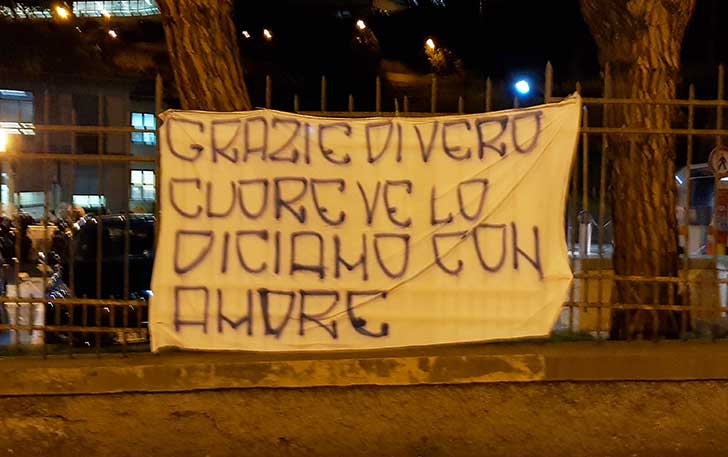 GRAZIE DI VERO
CUORE VE LO
DICIAMO CON
AMORE